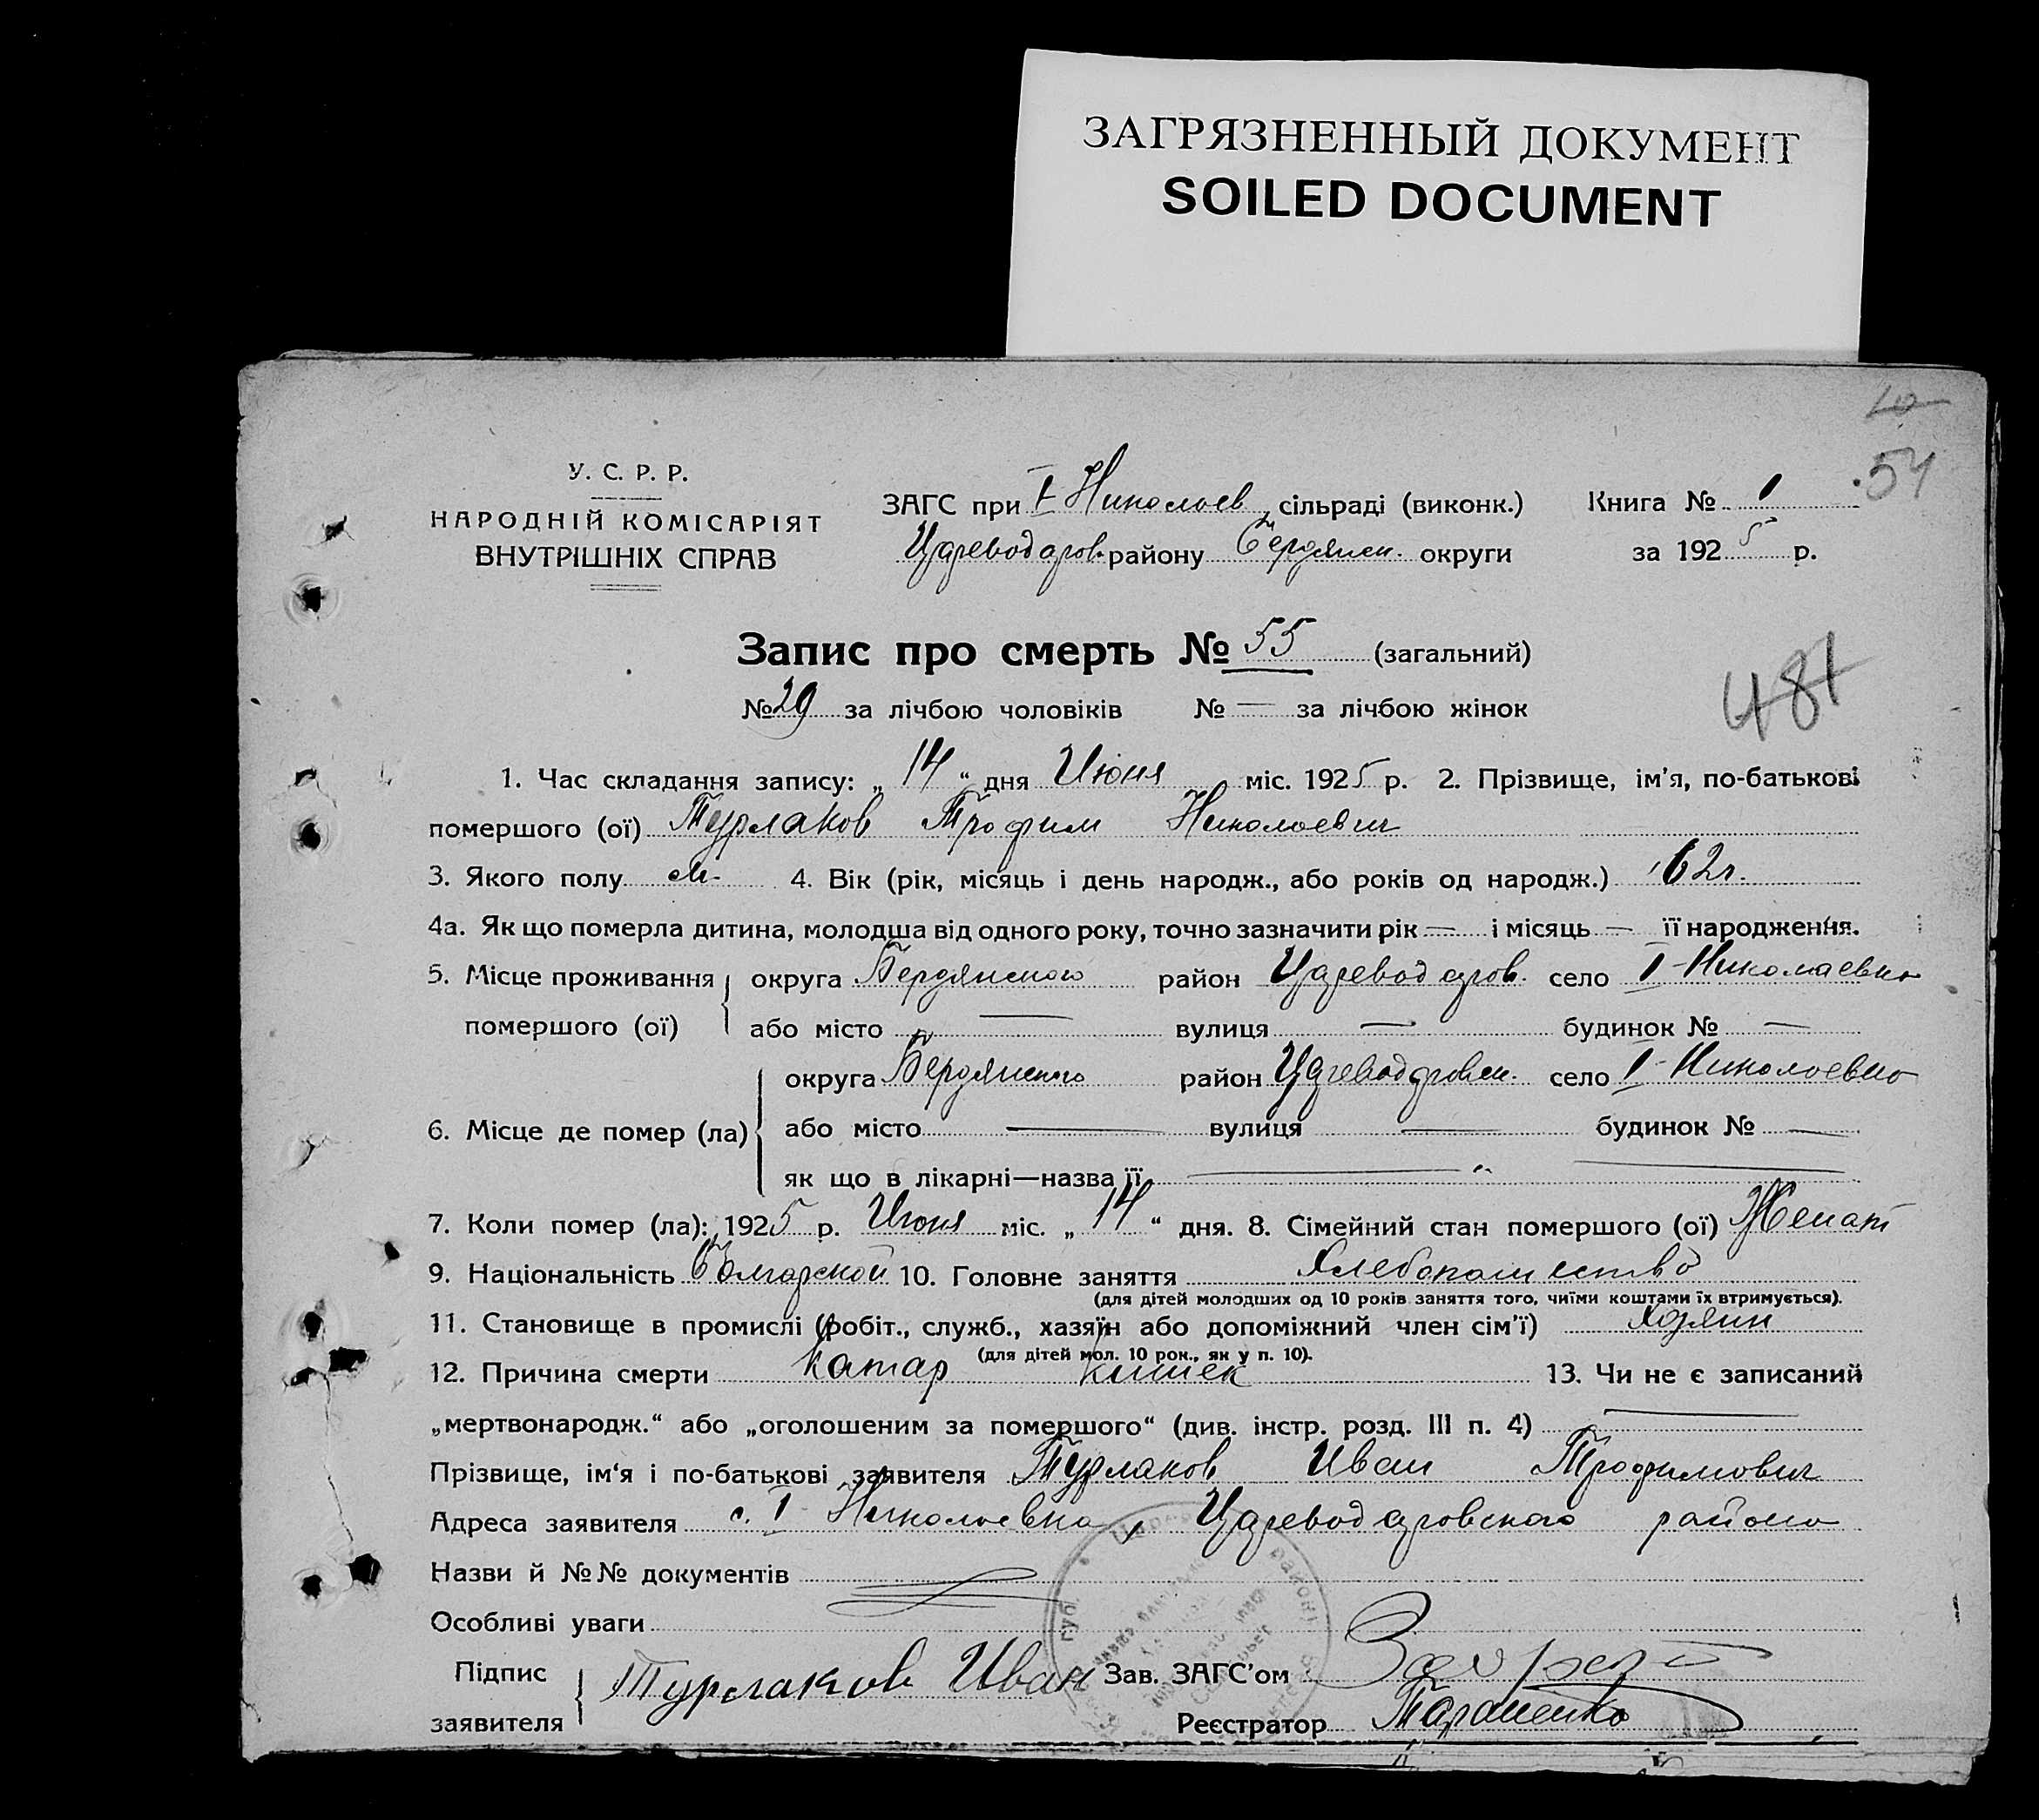 ЗАГРЯЗНЕННЫЙ ДОКУМЕНТ
SOILED DOCUMENT
54
У. С. Р. Р.
НАРОДНІЙ КОМІСАРІЯТ
ВНУТРІШНІХ СПРАВ
ЗАГС при I Николаев сільраді (виконк.) Книга № 1
Цареводаров. району Бердянск. округи за 1925 р.
Запис про смерть № 55 (загальний)
№ 29 за лічбою чоловіків № — за лічбою жінок
481
1. Час складання запису: „14“ дня Июня міс. 1925 р. 2. Прізвище, ім'я, по-батькові
помершого (ої) Турлаков Трофим Николаевич
3. Якого полу м. 4. Вік (рік, місяць і день народж., або років од народж.) 62 г.
4а. Як що померла дитина, молодша від одного року, точно зазначити рік — і місяць — її народження.
5. Місце проживання округа Бердянского район Цареводаров. село I-Николаевка
помершого (ої) або місто — вулиця — будинок № —
округа Бердянского район Цареводаровск. село I-Николаевка
6. Місце де помер (ла) або місто — вулиця — будинок № —
як що в лікарні—назва її — „ —
7. Коли помер (ла): 1925 р. Июня міс. „14“ дня. 8. Сімейний стан помершого (ої) Женат
9. Національність Болгарской 10. Головне заняття Хлебопашество
(для дітей молодших од 10 років заняття того, чиїми коштами їх втримується).
11. Становище в промислі (робіт., служб., хазяїн або допоміжний член сім'ї) Хозяин
(для дітей мол. 10 рок., як у п. 10).
12. Причина смерти Катар кишек 13. Чи не є записаний
„мертвонародж.“ або „оголошеним за помершого“ (див. інстр. розд. III п. 4) —
Прізвище, ім'я і по-батькові заявителя Турлаков Иван Трофимович
Адреса заявителя с. I Николаевка, Цареводаровского района
Назви й №№ документів
Особливі уваги
Підпис заявителя Турлаков Иван Зав. ЗАГС'ом
Реєстратор Тараненко